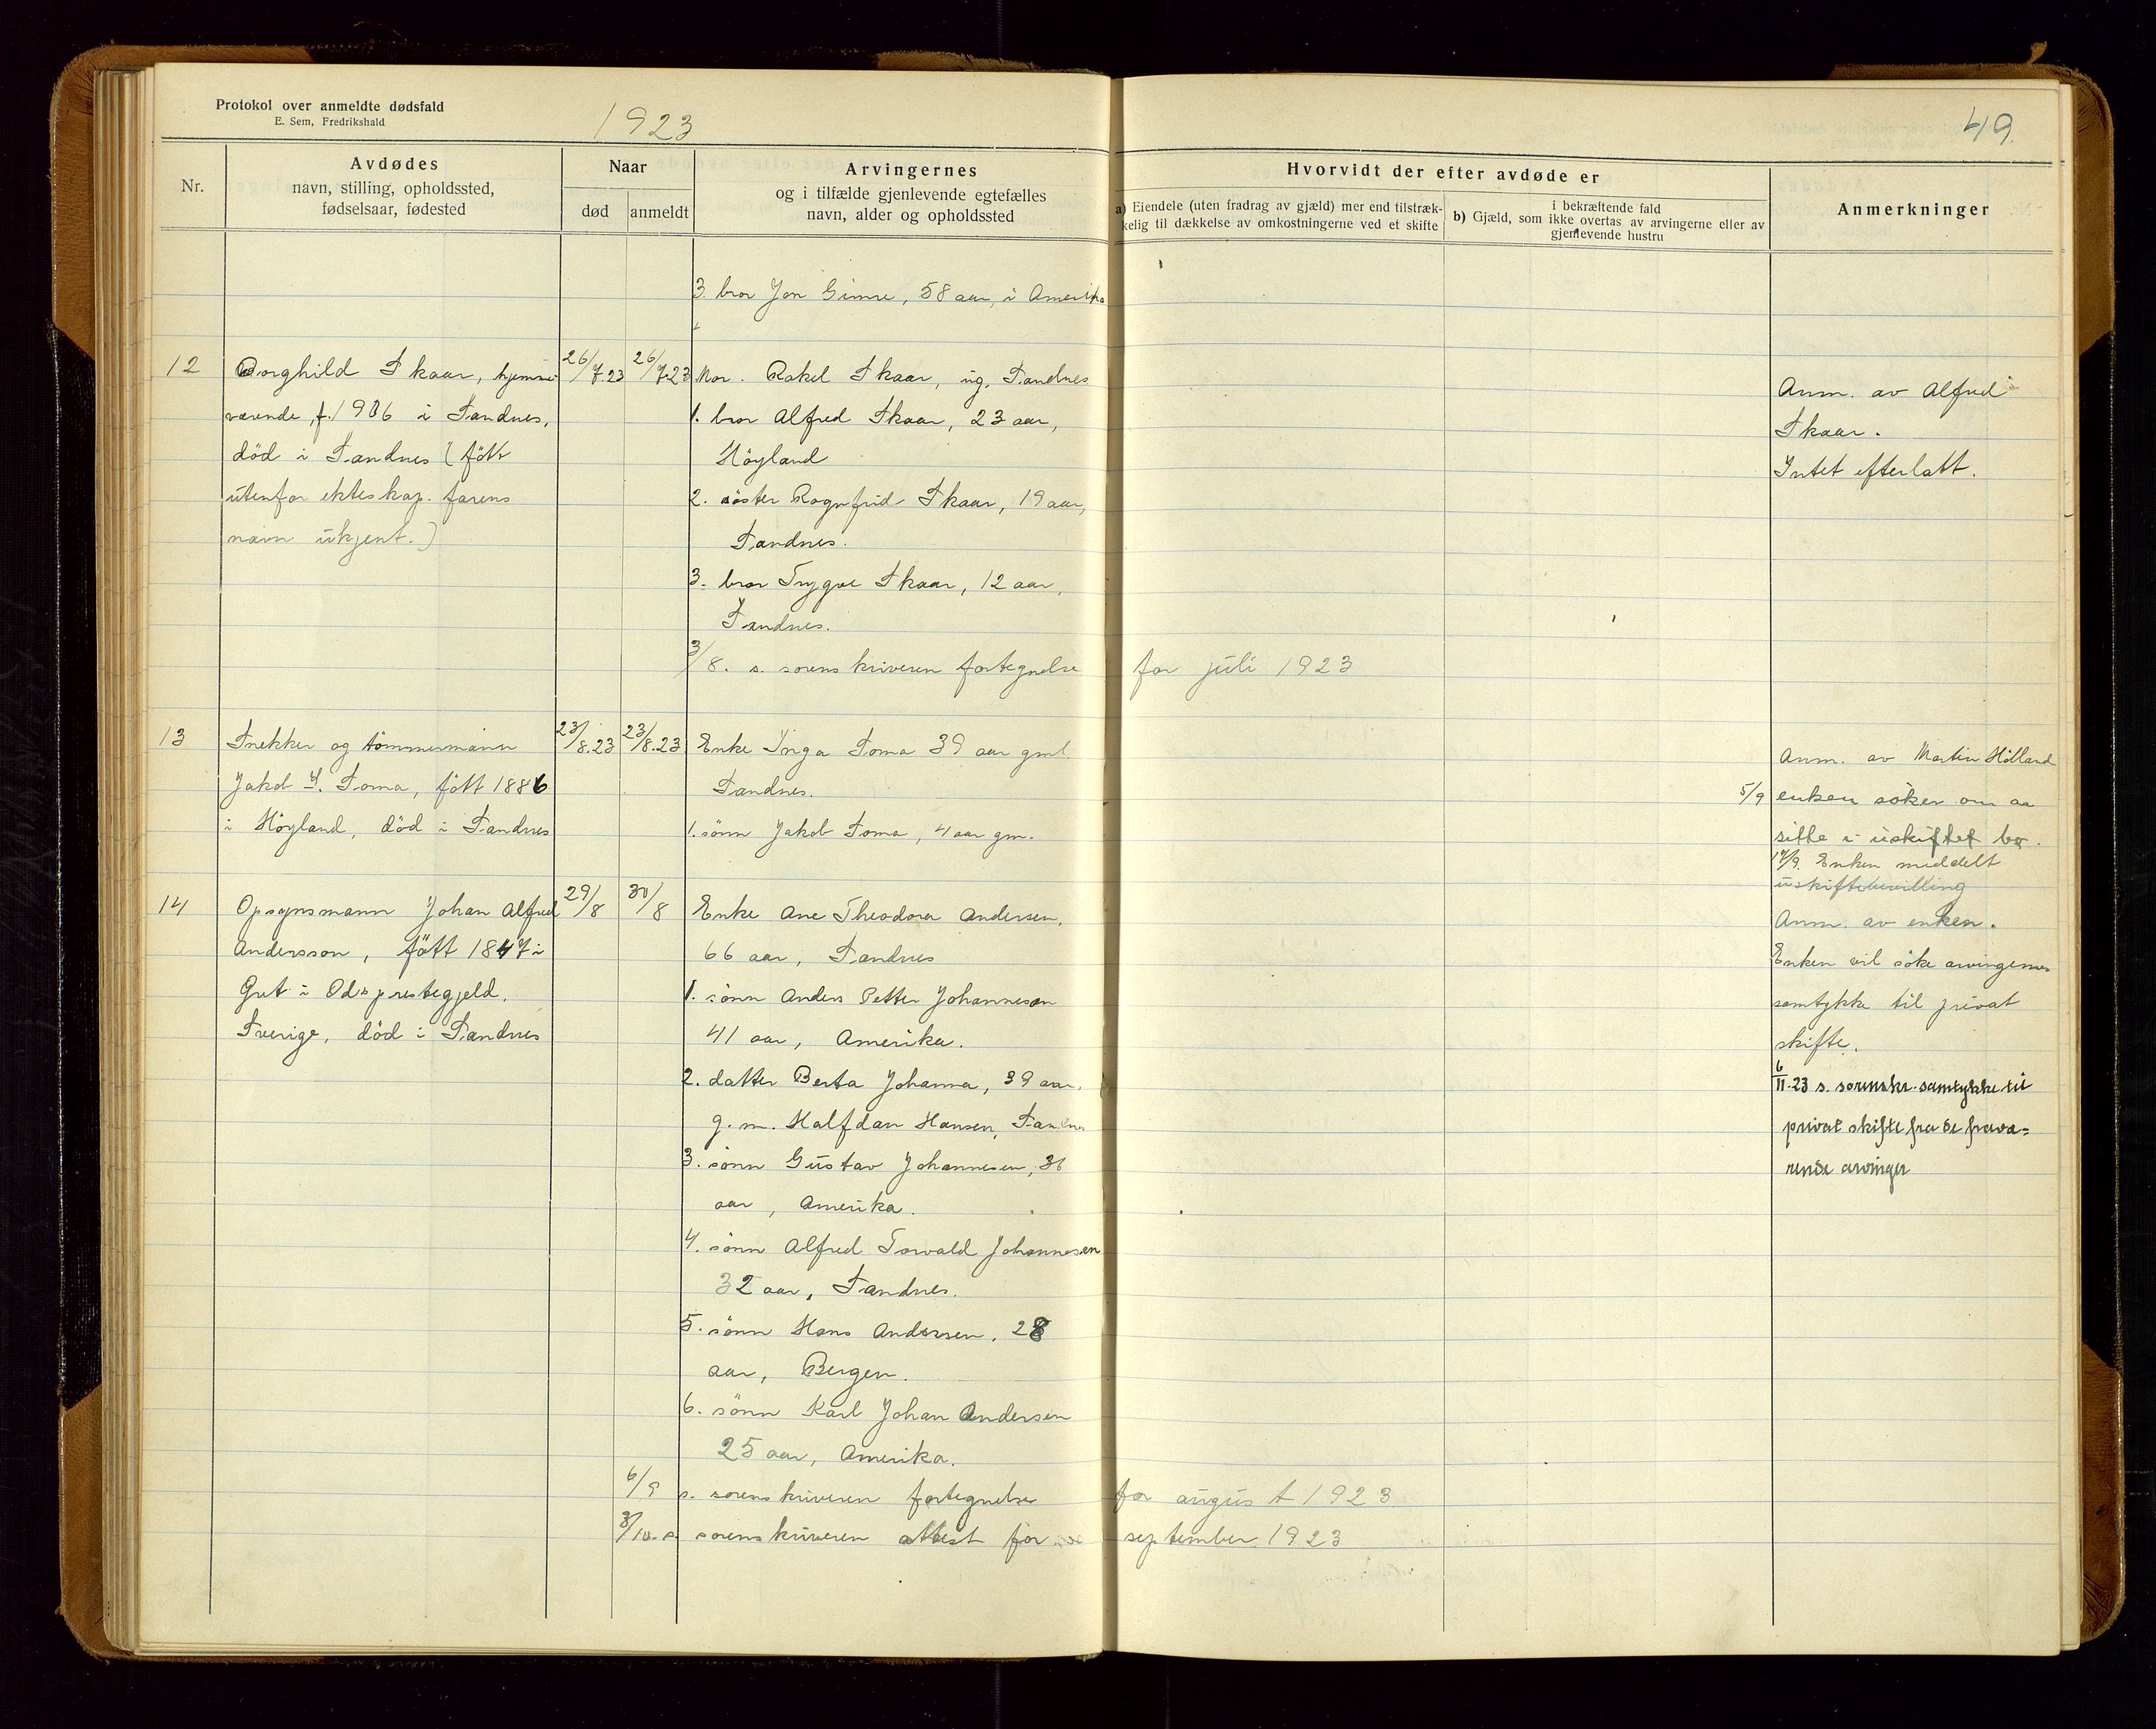 Protokol over anmeldte dødsfald
E. Sem, Fredrikshald
1923
49.
Nr.
Avdødes
navn, stilling, opholdssted,
fødselsaar, fødested
Naar
død
anmeldt
Arvingernes
og i tilfælde gjenlevende egtefælles
navn, alder og opholdssted
Hvorvidt der efter avdøde er
a) Eiendele (uten fradrag av gjæld) mer end tilstræk-
kelig til dækkelse av omkostningerne ved et skifte
i bekræftende fald
b) Gjæld, som ikke overtas av arvingerne eller av
gjenlevende hustru
Anmerkninger
3. bror Jon Gimre, 58 aar, i Amerika
12
Borghild Skaar, hjemme-
værende, f. 1906 i Sandnes,
död i Sandnes (fött
utenfor ekteskap. farens
navn ukjent.)
26/7.23
26/7.23
Mor. Rakel Skaar, ug. Sandnes
1. bror Alfred Skaar, 23 aar,
Höyland
2. söster Ragnfrid Skaar, 19 aar,
Sandnes.
3. bror Trygve Skaar, 12 aar,
Sandnes.
3/8. s. sorenskriveren fortegnelse for juli 1923
Anm. av Alfred
Skaar.
Intet efterlatt.
13
Snekker og tömmermann
Jakob S. Soma, fött 1886
i Höyland, död i Sandnes
23/8.23
23/8.23
Enke Inga Soma 39 aar gml.
Sandnes.
1. sönn Jakob Soma, 4 aar gm.
Anm. av Martin Hölland
5/9 enken söker om aa
sitte i uskiftet bo.
17/9. Enken meddelt
uskiftebevilling
14
Opsynsmann Johan Alfred
Andersson, fött 1847 i
Gret i Ods prestegjeld.
Sverige, död i Sandnes
29/8
30/8
Enke Ane Theodora Andersen,
66 aar, Sandnes
1. sönn Anders Petter Johannesen
41 aar, Amerika.
2. datter Berta Johanna, 39 aar,
g. m. Halfdan Hansen, Sandnes
3. sönn Gustav Johannesen, 36
aar, Amerika.
4. sönn Alfred Torvald Johannesen
32 aar, Sandnes.
5. sönn Hans Andersen, 28
aar, Bergen.
6. sönn Karl Johan Andersen
25 aar, Amerika.
Anm. av enken.
Enken vil söke arvingenes
samtykke til privat
skifte.
6/11-23 s. sorenskr. samtykke til
privat skifte fra de fravæ=
rende arvinger
6/9 s. sorenskriveren fortegnelse for august 1923
3/10. s. sorenskriveren attest for september 1923